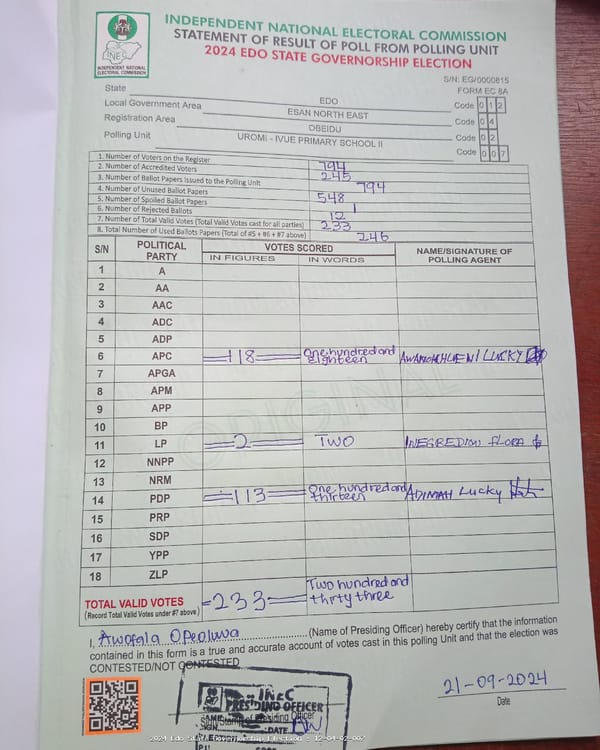 INDEPENDENT NATIONAL ELECTORAL COMMISSION
STATEMENT OF RESULT OF POLL FROM POLLING UNIT
2024 EDO STATE GOVERNORSHIP ELECTION
INEC
INDEPENDENT NATIONAL
ELECTORAL COMMISSION
S/N: EG/0000815
FORM EC 8A
State EDO Code 0 1 2
Local Government Area ESAN NORTH EAST Code 0 4
Registration Area OBEIDU Code 0 2
Polling Unit UROMI - IVUE PRIMARY SCHOOL II Code 0 0 7
1. Number of Voters on the Register 794
2. Number of Accredited Voters 245
3. Number of Ballot Papers Issued to the Polling Unit 794
4. Number of Unused Ballot Papers 548
5. Number of Spoiled Ballot Papers 1
6. Number of Rejected Ballots 12
7. Number of Total Valid Votes (Total Valid Votes cast for all parties) 233
8. Total Number of Used Ballots Papers (Total of #5 + #6 + #7 above) 246
S/N POLITICAL PARTY VOTES SCORED NAME/SIGNATURE OF POLLING AGENT
IN FIGURES IN WORDS
1 A
2 AA
3 AAC
4 ADC
5 ADP
6 APC 118 One hundred and eighteen LUCKY
7 APGA
8 APM
9 APP
10 BP
11 LP 2 TWO INEGREDION FLORA
12 NNPP
13 NRM
14 PDP 113 One hundred and thirteen ADIMAH Lucky
15 PRP
16 SDP
17 YPP
18 ZLP
TOTAL VALID VOTES =233= Two hundred and thirty three
(Record Total Valid Votes under #7 above)
ORIGINAL
I, Awofala Opeoluwa (Name of Presiding Officer) hereby certify that the information
contained in this form is a true and accurate account of votes cast in this polling Unit and that the election was
CONTESTED/NOT CONTESTED
INEC
PRESIDING OFFICER
Presiding Officer
DATE
21-09-2024
Date